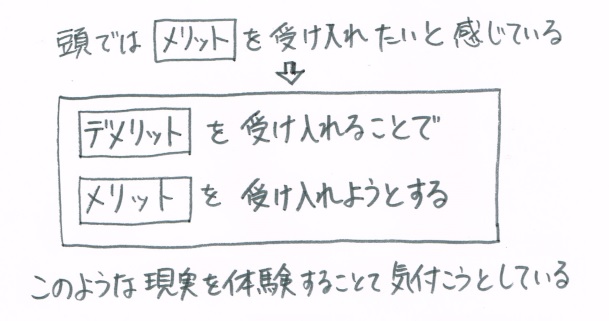 頭では メリット を 受け入れたいと 感じている
⇩
デメリット を 受け入れることで
メリット を 受け入れようとする
このような 現実を体験することで 気付こうとしている